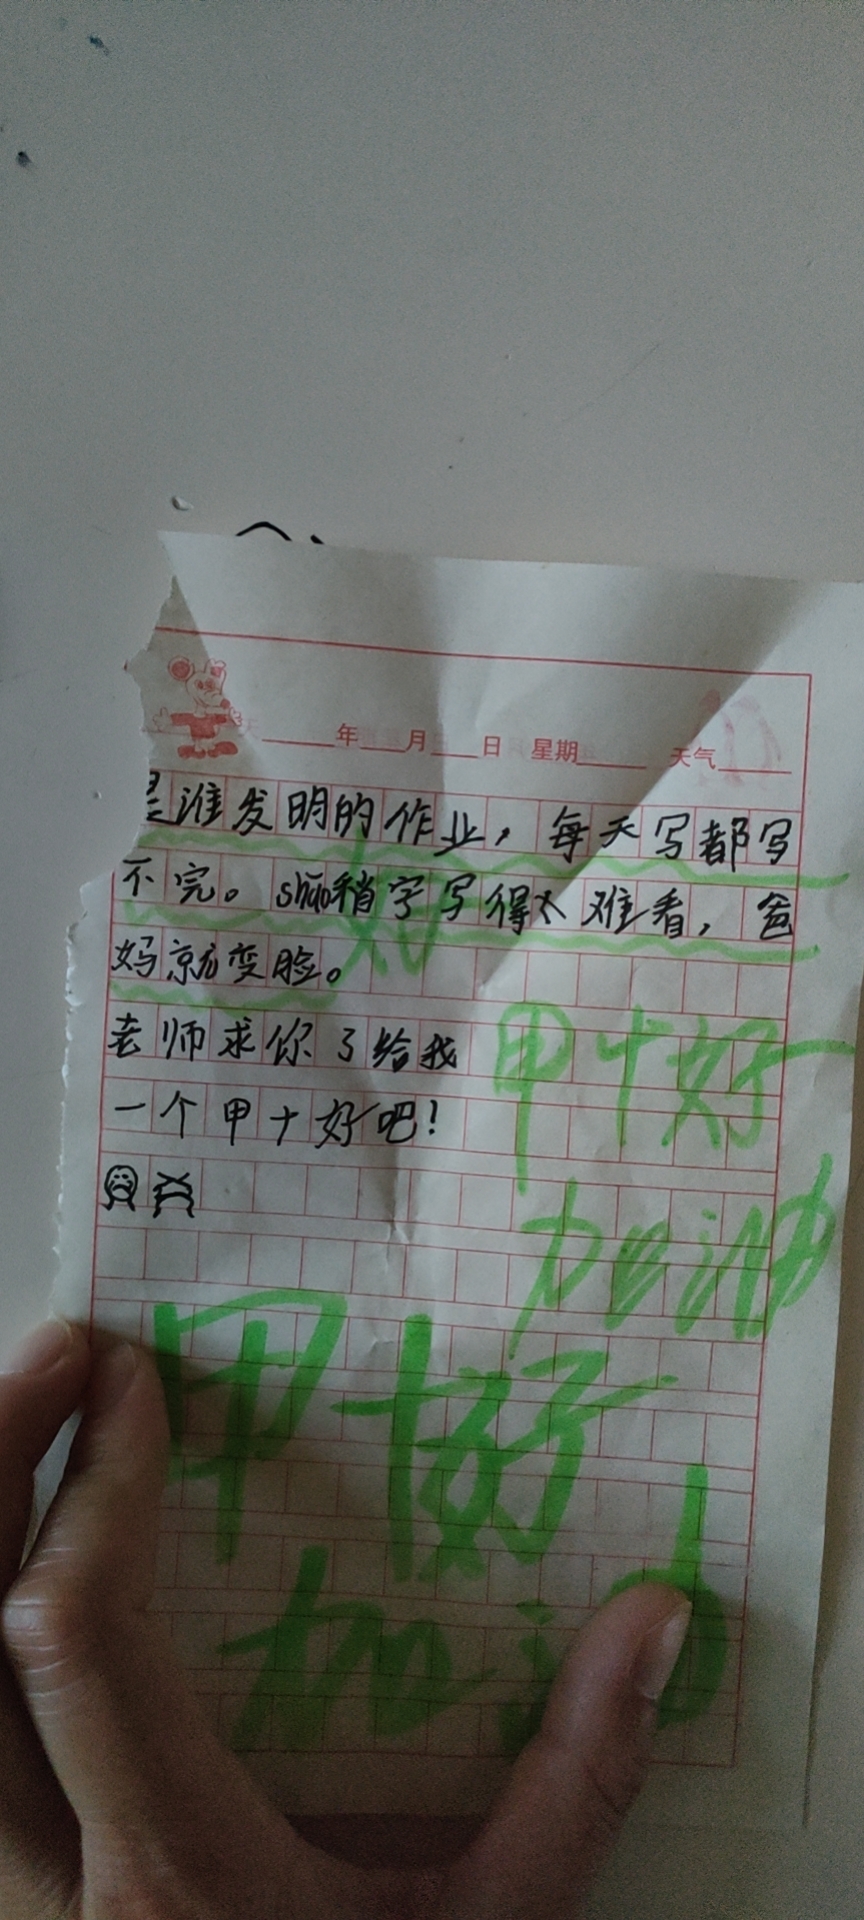 年 月 日 星期 天气
是谁发明的作业，每天写都写
不完。shāo稍字写得太难看，爸
妈就变脸。
老师求你了给我
一个甲十好吧！
甲十好
加油
甲十好
加油